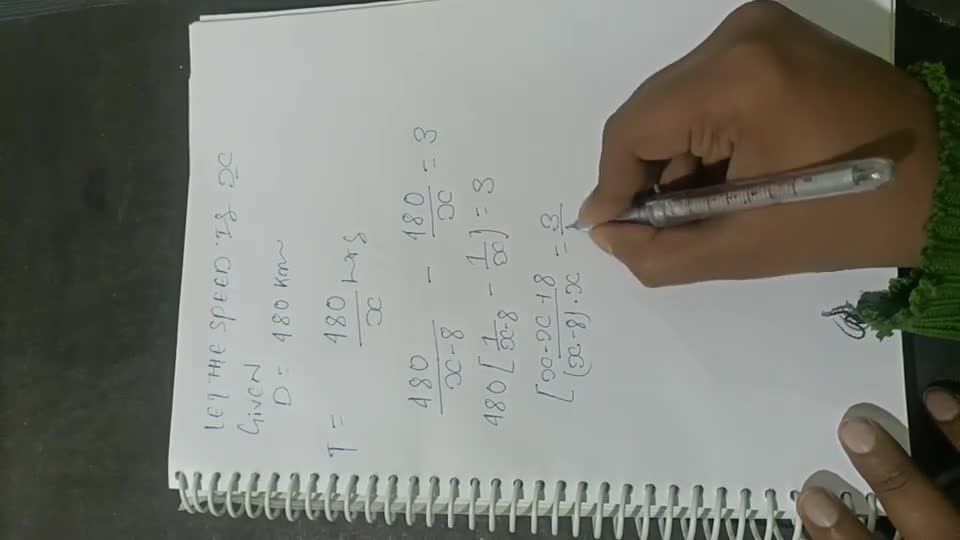 LET THE SPEED IS x
GIVEN
D = 480 Km
T = 480/x hrs
480/(x-8) - 480/x = 3
480[1/(x-8) - 1/x] = 3
[(x-x+8)/((x-8).x) = 3/